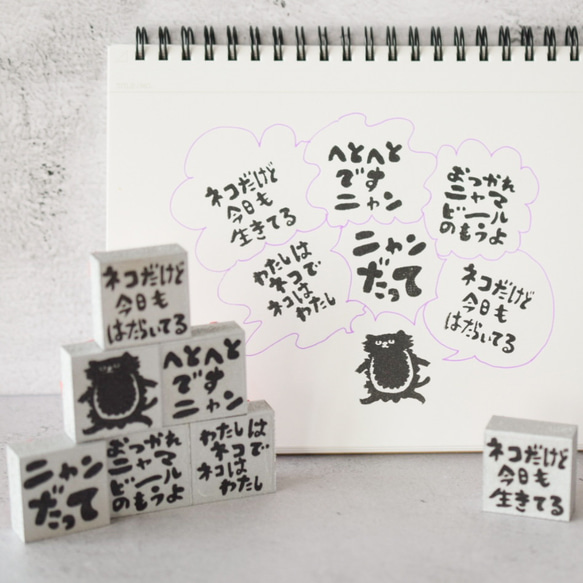 ネコだけど
今日も
生きてる
へとへと
です
ニャン
おつかれ
ニャマ
ビール
のもうよ
わたしは
ネコで
ネコは
わたし
ニャン
だって
ネコだけど
今日も
はたらいてる
ネコだけど
今日も
はたらいてる
へとへと
です
ニャン
ニャン
だって
おつかれ
ニャマ
ビール
のもうよ
わたしは
ネコで
ネコは
わたし
ネコだけど
今日も
生きてる